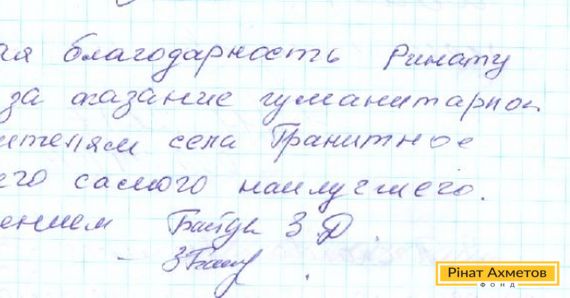 ая благодарность Ринату
за оказание гуманитарной
ителям села Гранитное
его самого наилучшего.
ением З. Д.
Рінат Ахметов
ФОНД